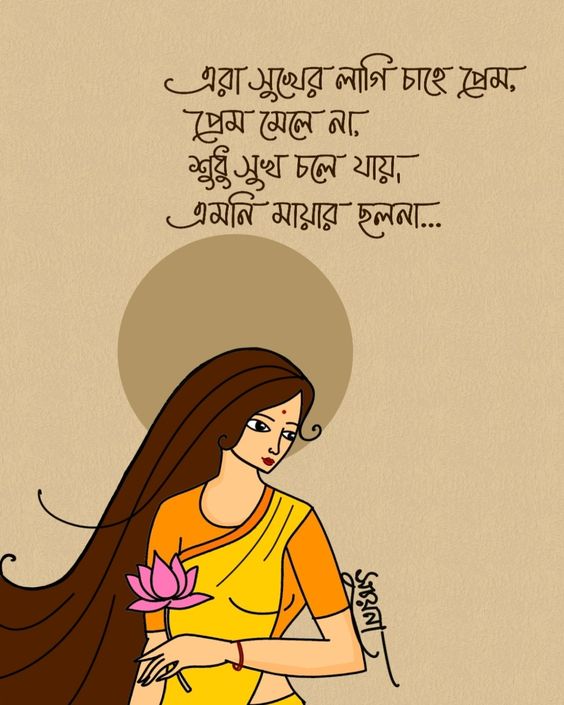 এরা সুখের লাগি চাহে প্রেম,
প্রেম মেলে না,
শুধু সুখ চলে যায়,
এমনি মায়ার ছলনা...